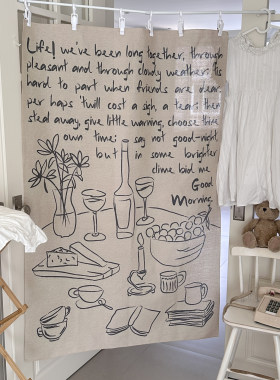 Life! we've been long together, through
pleasant and through cloudy weather; 'tis
hard to part when friends are dear,
per haps 'twill cost a sigh, a tear; then
steal away, give little warning, choose thine
own time; say not good-night,
but in some brighter
clime bid me
Good
Morning.